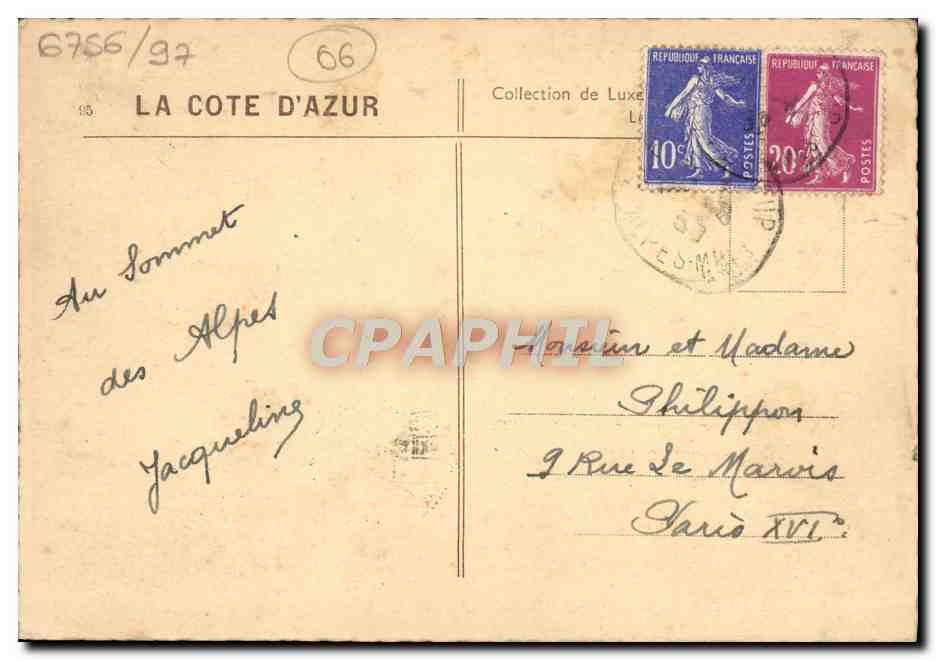 6756/97
06
95 LA COTE D'AZUR
Collection de Luxe
REPUBLIQUE FRANÇAISE
10c
POSTES
REPUBLIQUE FRANÇAISE
20c
POSTES
ALPES-MMES
Au Sommet
des Alpes
Jacqueline
CPAPHIL
Monsieur et Madame
Philippon
9 Rue Le Marois
Paris XVIe.